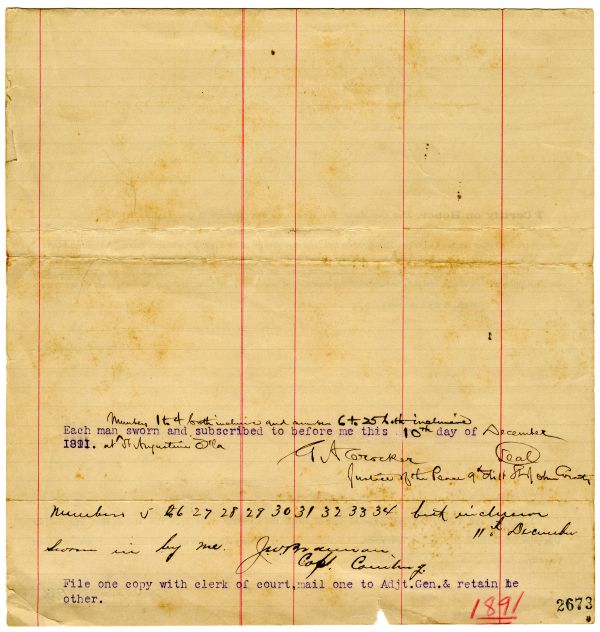 Numbers 1 to 4 both inclusive and numbers 6 to 25 both inclusive
Each man sworn and subscribed to before me this 10th day of December
1891. at St Augustine Fla
A Crocker Seal
Justice of the Peace 9th Dist St John County
Numbers 5 26 27 28 29 30 31 32 33 34 both inclusive
11th December
Sworn in by me.
Capt.
File one copy with clerk of court,mail one to Adjt.Gen.& retain he
other.
1891 2673